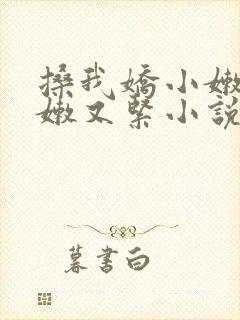 搡我嬌小嫩
嫩又緊小說
暮書白